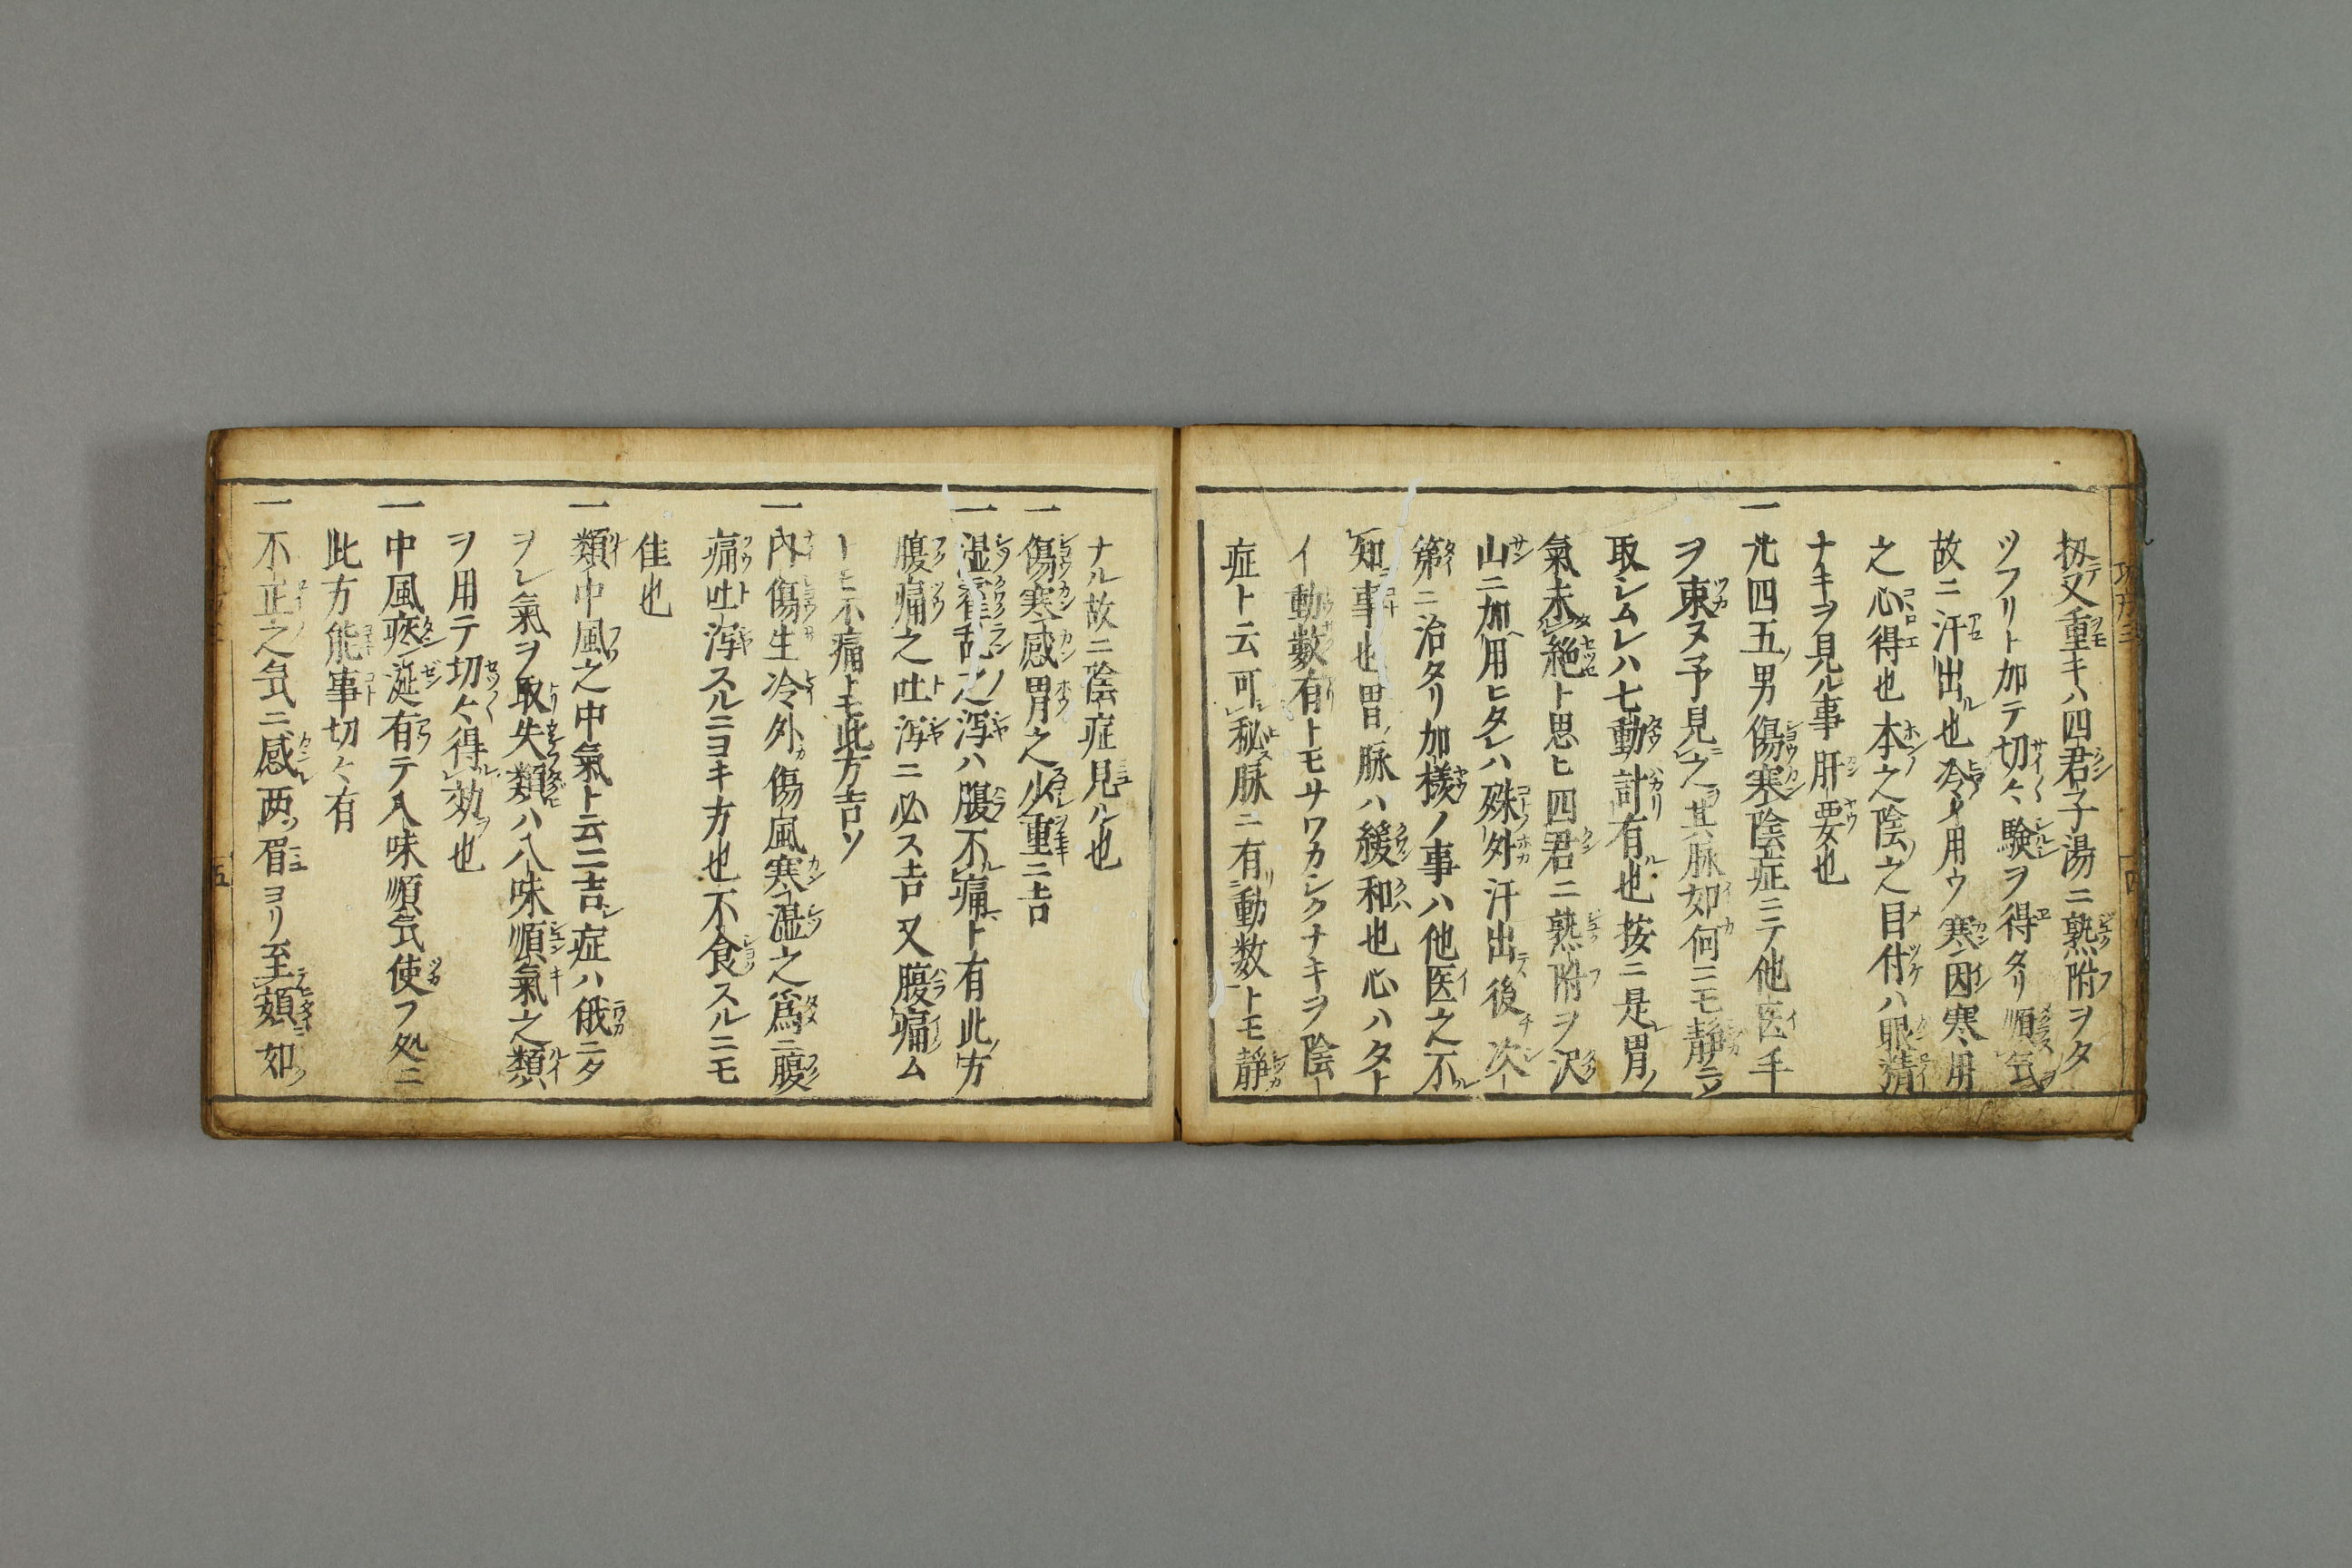 扨又重キハ四君子湯ニ熟附ヲタ
ツフリト加テ切々験ヲ得タリ順気
故ニ汗出也冷メ用ウ寒因寒用
之心得也本之陰之目付ハ眼精
ナキヲ見ル事肝要也
一 尤四五男傷寒陰症ニテ他医手
ヲ束ヌ予見之其脉如何ニモ静ニヲ
取シムレハ七動計有也按ニ是胃ノ
氣未絶ト思ヒ四君ニ熟附ヲ沢
山ニ加用ヒタレハ殊外汗出後次
第ニ治タリ加様ノ事ハ他医之不
知事也胃ノ脉ハ緩和也心ハタト
イ動數有トモサワカシクナキヲ陰
症ト云可秘脉ニ有動数トモ静
ナル故ニ陰症見ル也
一 傷寒感胃之少重ニ吉
一 湿霍乱之瀉ハ腹不痛ト有此方
腹痛之吐瀉ニ必ス吉又腹痛ム
トモ不痛トモ此方吉ソ
一 内傷生冷外傷風寒湿之爲ニ腹
痛吐瀉スルニヨキ方也不食スルニモ
佳也
一 類中風之中氣ト云ニ吉症ハ俄ニタ
ヲレ氣ヲ取失類ハ八味順氣之類
ヲ用テ切々得効也
一 中風痰涎有テ八味順気使フ処ニ
此方能事切々有
一 不正之気ニ感両眉ヨリ至頬如